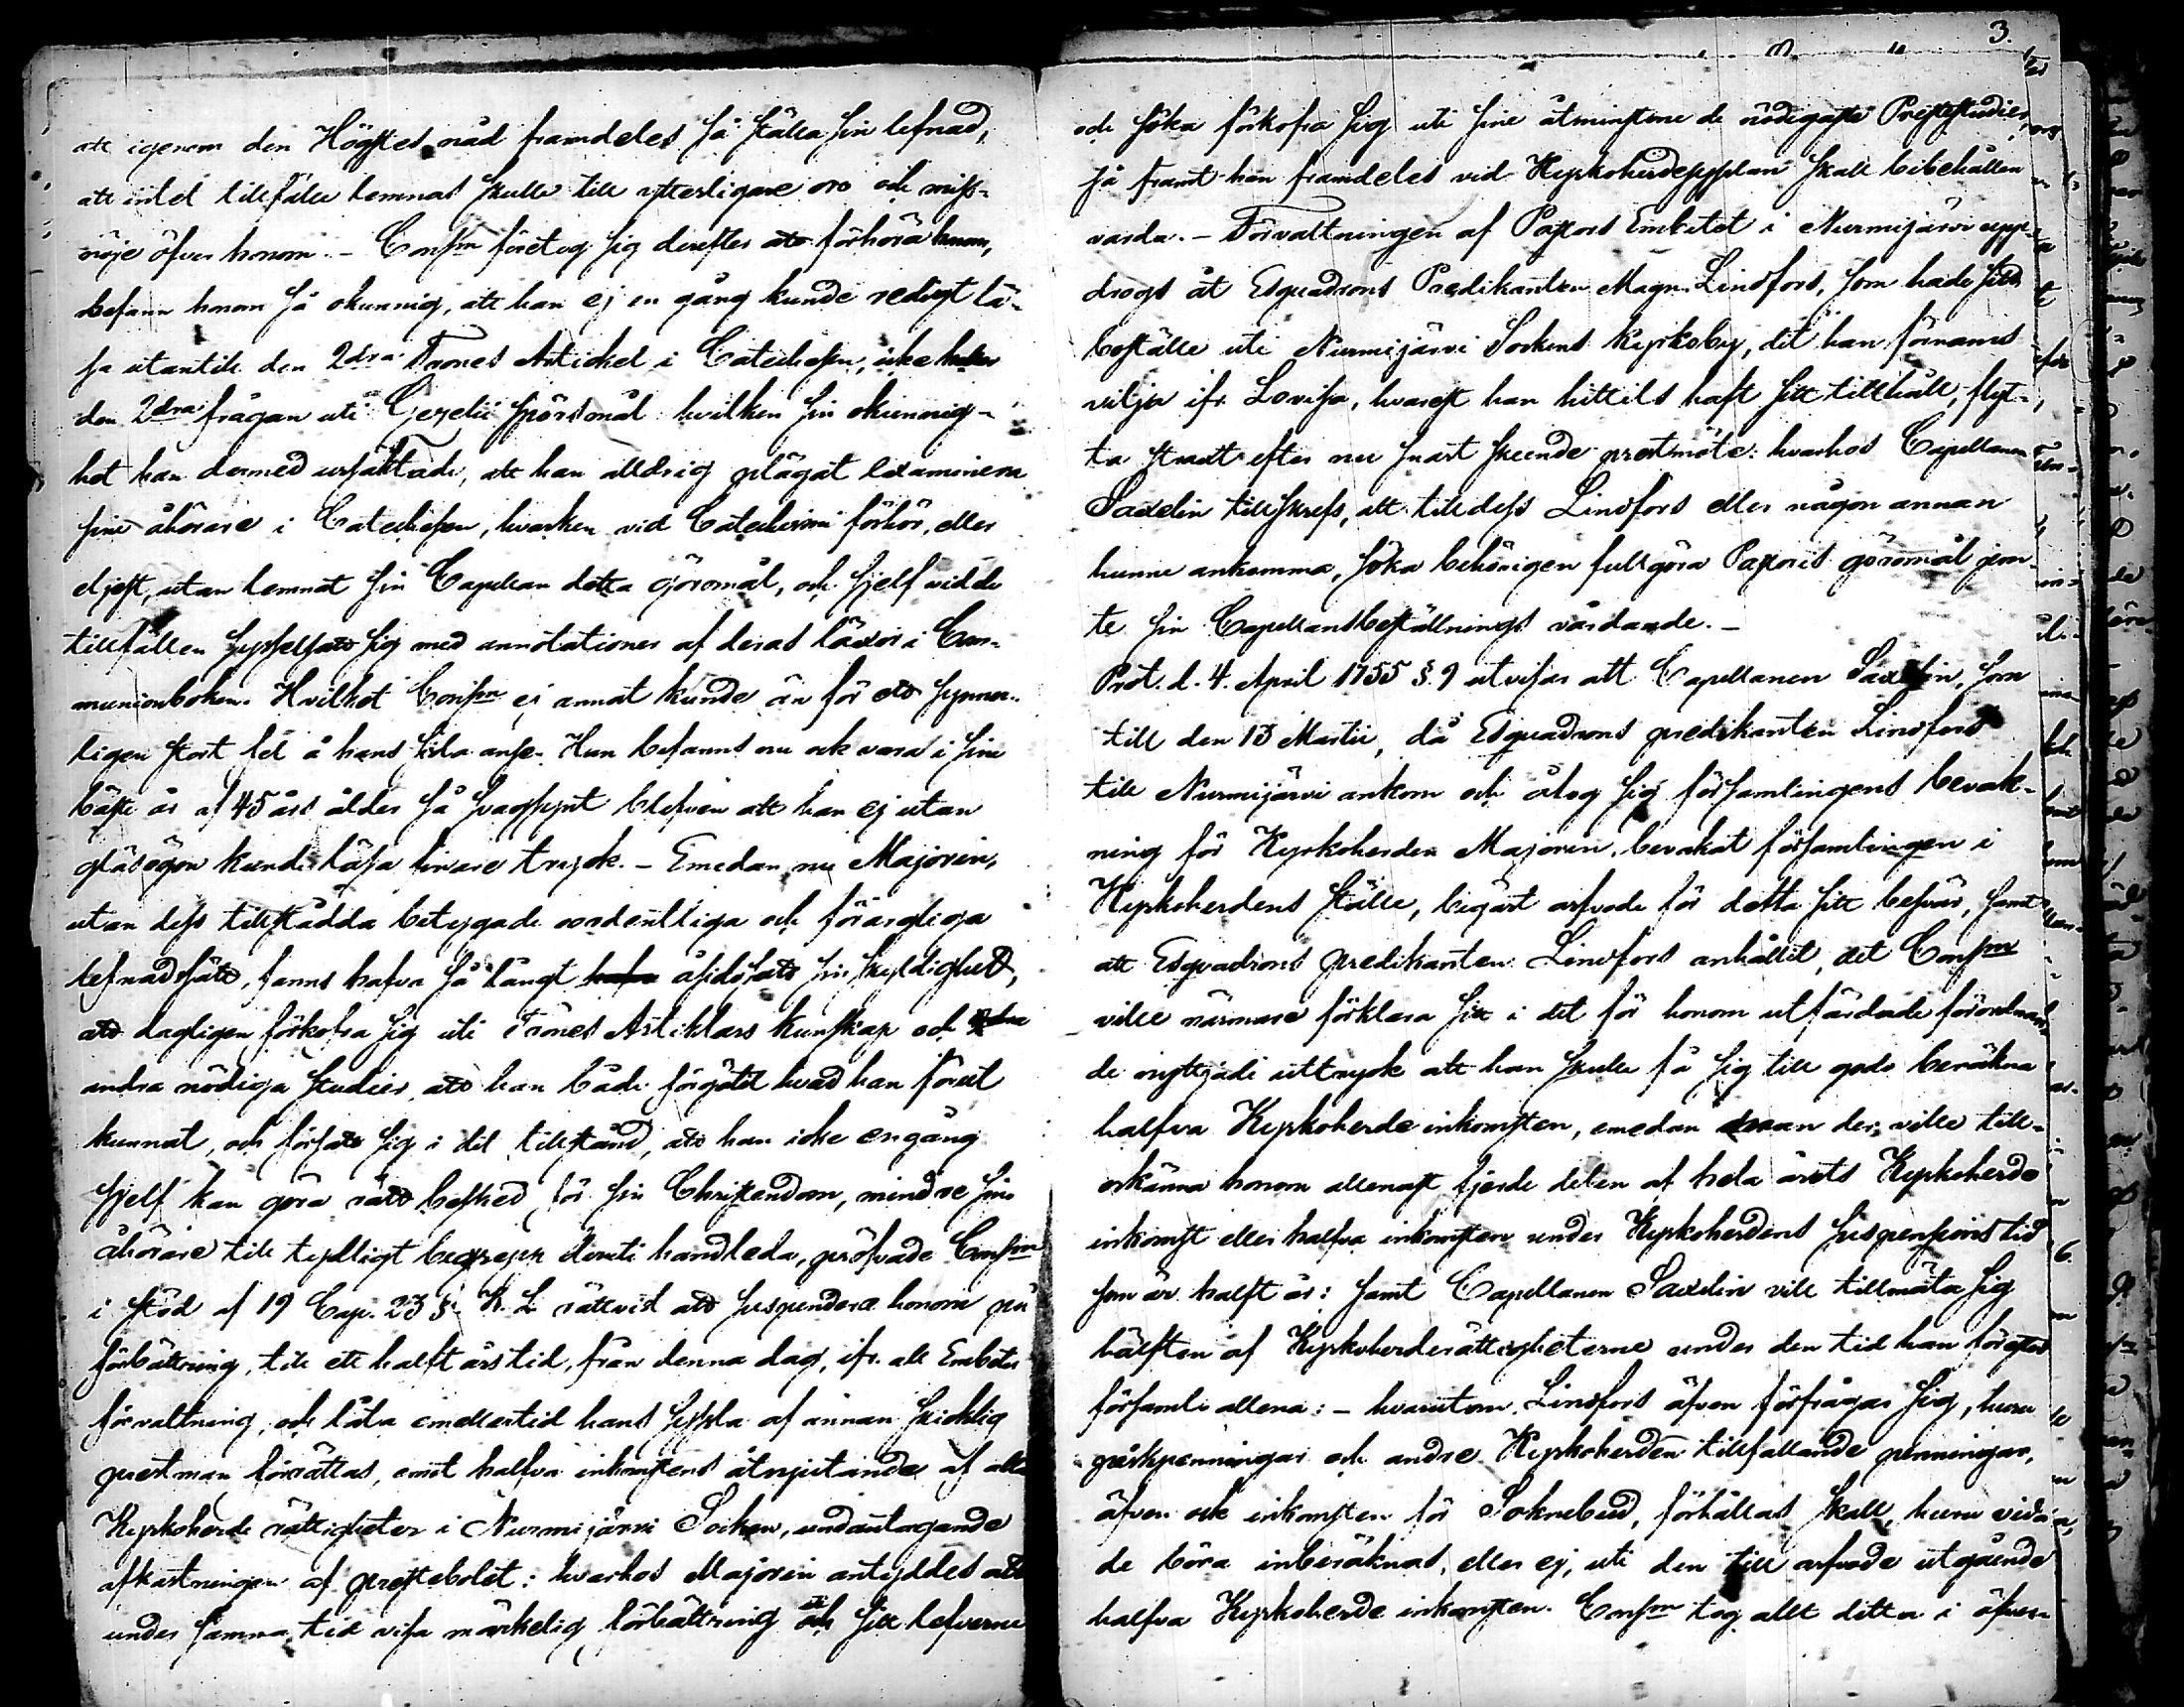 att igenom den Högstes nåd framdeles så ställa sin lefnad,
att intet tillfälle lemnas skulle till ytterligare oro och miss-
nöje öfver honom. – Cons:m företog sig derefter att förhöra honom,
befann honom så okunnig, att han ej en gång kunde redigt lä-
sa utantill den 2dra Trones Artickel i Catechesen, icke heller
den 2dra frågan uti Gezelii spörsmål hvilken sin okunnig-
het han dermed urskäktade, att han alldrig plägat examinera
sine åhörare i Catechesen, hvarken vid Catechismi förhör, eller
eljest, utan lemnat sin Capellan detta göromål, och sjelf vid de
tillfällen sysselsatt sig med annotationer af deras läxor i Com-
munionboken. Hvilket Cons:m ej annat kunde än för ett synner-
ligen stort fel å hans sida anse. Han befanns nu ock vara i sine
bäste år af 45 års ålder så svagsynt blefven att han ej utan
glasögon kunde läsa finare tryck. – Emedan nu Majorin,
utan dess tillstådda betygade oordentliga och förargliga
lefnadssätt, fanns hafva så långt åsidosatt sin skyldighet,
att dagligen förkofra sig uti Trones Artiklars kunskap och
andra nödiga studier, att han både förgätit hvad han förut
kunnat, och försatt sig i det tillstånd, att han icke engång
sjelf kan göra rätt besked för sin Christendom, mindre sine
åhörare till tydligt begrepp deruti handleda, pröfvade Cons:m
i stöd af 19 Cap. 23 § K. L. rättvist att suspendera honom på
förbättring, till ett halft års tid, från denna dag, ifr. all Embets
förvaltning, och låta emellertid hans syssla af annan skicklig
prestman förrättas, emot halfva inkomstens åtnjutande af alla
Kyrkoherde rättigheter i Nurmijärvi Socken, undantagande
afkastningen af prestebolet: hvarhos Majorin antyddes att
under samma tid visa märkelig förbättring till sitt lefverne
3.
och söka förkofra sig uti sine åtminstone de nödigaste Prestestudier
så framt han framdeles vid Kyrkoherdesysslan skall bibehållen
varda. – Förvaltningen af Pastors Embetet i Nurmijärvi upp-
drogs åt Esquadrons Predikanten Magn. Lindfors, som hade sitt
boställe uti Nurmijärvi Sockens Kyrkoby, dit han förnams
vilja ifr. Lovisa, hvarest han hittils haft sitt tillhåll, flyt-
ta straxt efter nu snart skeende prestmöte: hvarhos Capellanen
Saxelin tillskrefs, att till dess Lindfors eller någon annan
hunne ankomma, söka behörigen fullgöra Pastoris göromål jem-
te sin Capellansbeställnings vårdande. –
Prot. d. 4. April 1755 §. 9 utvisar att Capellanen Saxelin, som
till den 13 Martii, då Esquadrons predikanten Lindfors
till Nurmijärvi ankom och åtog sig församlingens bevak-
ning för Kyrkoherden Majorin, bevakat församlingen i
Kyrkoherdens ställe, begärt arfvode för detta sitt besvär, samt
att Esquadrons predikanten Lindfors anhållit, det Cons:m
ville närmare förklara sitt i det för honom utfärdade förordnan-
de nyttjade uttryck att han skulle få sig till godo beräkna
halfva Kyrkoherde inkomsten, emedan man der ville till-
erkänna honom allenast fjerde delen af hela årets Kyrkoherde
inkomst eller halfva inkomsten under Kyrkoherdens suspensions tid
som är halft år: samt Capellanen Saxelin vill tillmäta sig
hälften af Kyrkoherderättigheterne under den tid han förestod
församl: allena: – hvarutom Lindfors äfven förfrågar sig, huru
påskpenningar och andre Kyrkoherden tillfallande penningar,
äfven ock inkomsten för Soknebud, förhållas skall, huru vida
de böra inberäknas, eller ej, uti den till arfvode utgående
halfva Kyrkoherde inkomsten. Cons:m tog allt detta i öfver-